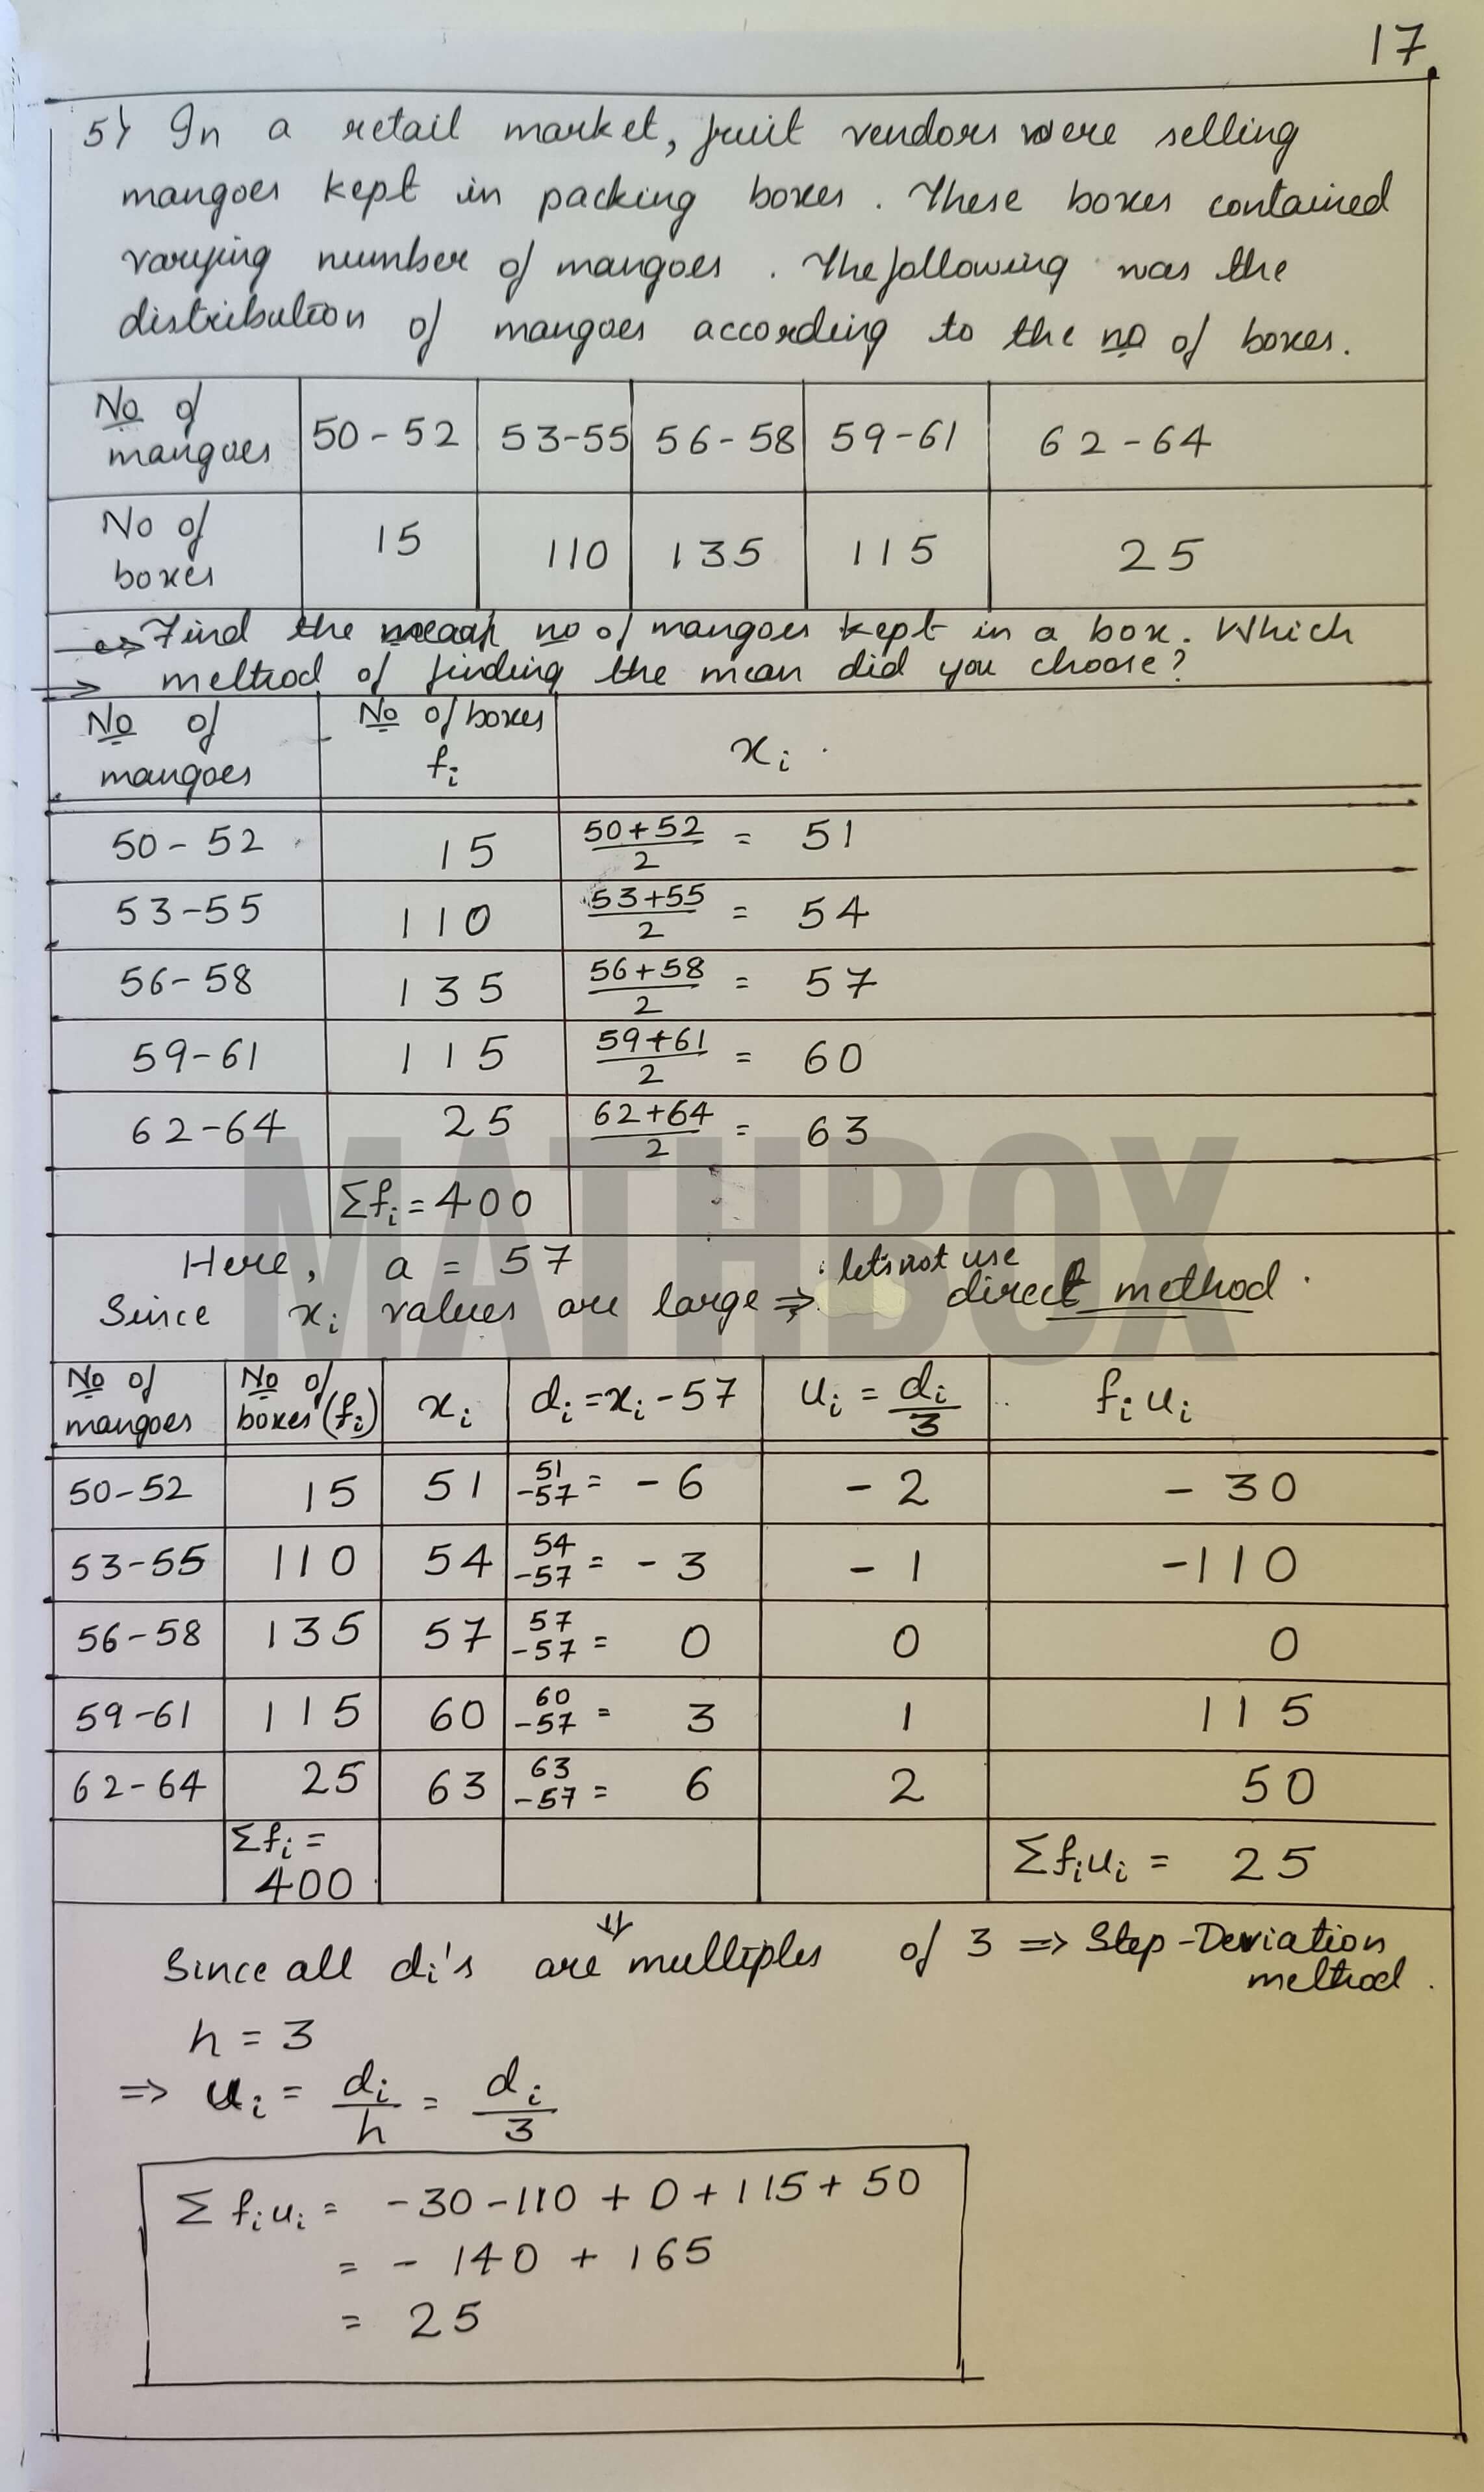 17
5) In a retail market, fruit vendors were selling
mangoes kept in packing boxes. These boxes contained
varying number of mangoes. The following was the
distribution of mangoes according to the no of boxes.
No of mangoes | 50-52 | 53-55 | 56-58 | 59-61 | 62-64
No of boxes | 15 | 110 | 135 | 115 | 25
→ Find the mean no of mangoes kept in a box. Which
⇒ method of finding the mean did you choose?
No of mangoes | No of boxes fi | xi
50-52 | 15 | 50+52/2 = 51
53-55 | 110 | 53+55/2 = 54
56-58 | 135 | 56+58/2 = 57
59-61 | 115 | 59+61/2 = 60
62-64 | 25 | 62+64/2 = 63
Σfi = 400
MATHBOX
Here, a = 57
Since xi values are large ⇒ let's not use direct method.
No of mangoes | No of boxes (fi) | xi | di = xi - 57 | ui = di/3 | fiui
50-52 | 15 | 51 | 51-57 = -6 | -2 | -30
53-55 | 110 | 54 | 54-57 = -3 | -1 | -110
56-58 | 135 | 57 | 57-57 = 0 | 0 | 0
59-61 | 115 | 60 | 60-57 = 3 | 1 | 115
62-64 | 25 | 63 | 63-57 = 6 | 2 | 50
Σfi = 400 | Σfiui = 25
Since all di's are multiples of 3 ⇒ Step-Deviation
method.
h = 3
⇒ ui = di/h = di/3
Σfiui = -30-110+0+115+50
= -140 + 165
= 25